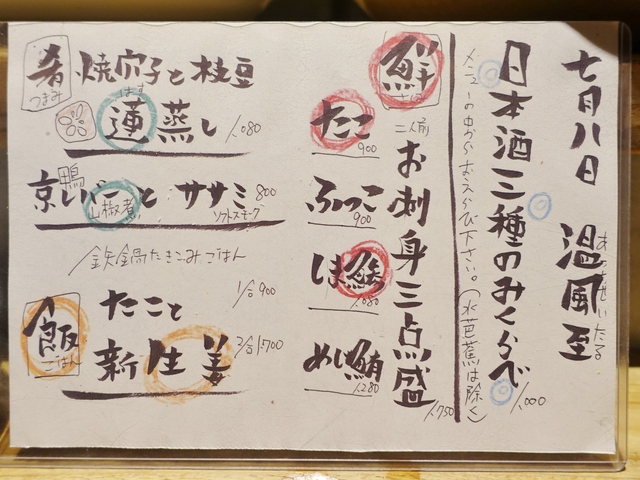 七月八日 温風至
あつかぜいたる
日本酒三種のみくらべ
1,000
メニューの中からおえらび下さい。(水芭蕉は除く)
鮮
二人前 お刺身三点盛
1,750
たこ
900
ふっこ
900
しま鯵
1,080
めじ鮪
1,280
肴
つまみ
焼穴子と枝豆
はす
蓮蒸し
1,080
京鴨レバーとササミ
800
山椒煮
ソフトスモーク
飯
ごはん
鉄鍋たきこみごはん
たこと
新生姜
1合900
2合1,700